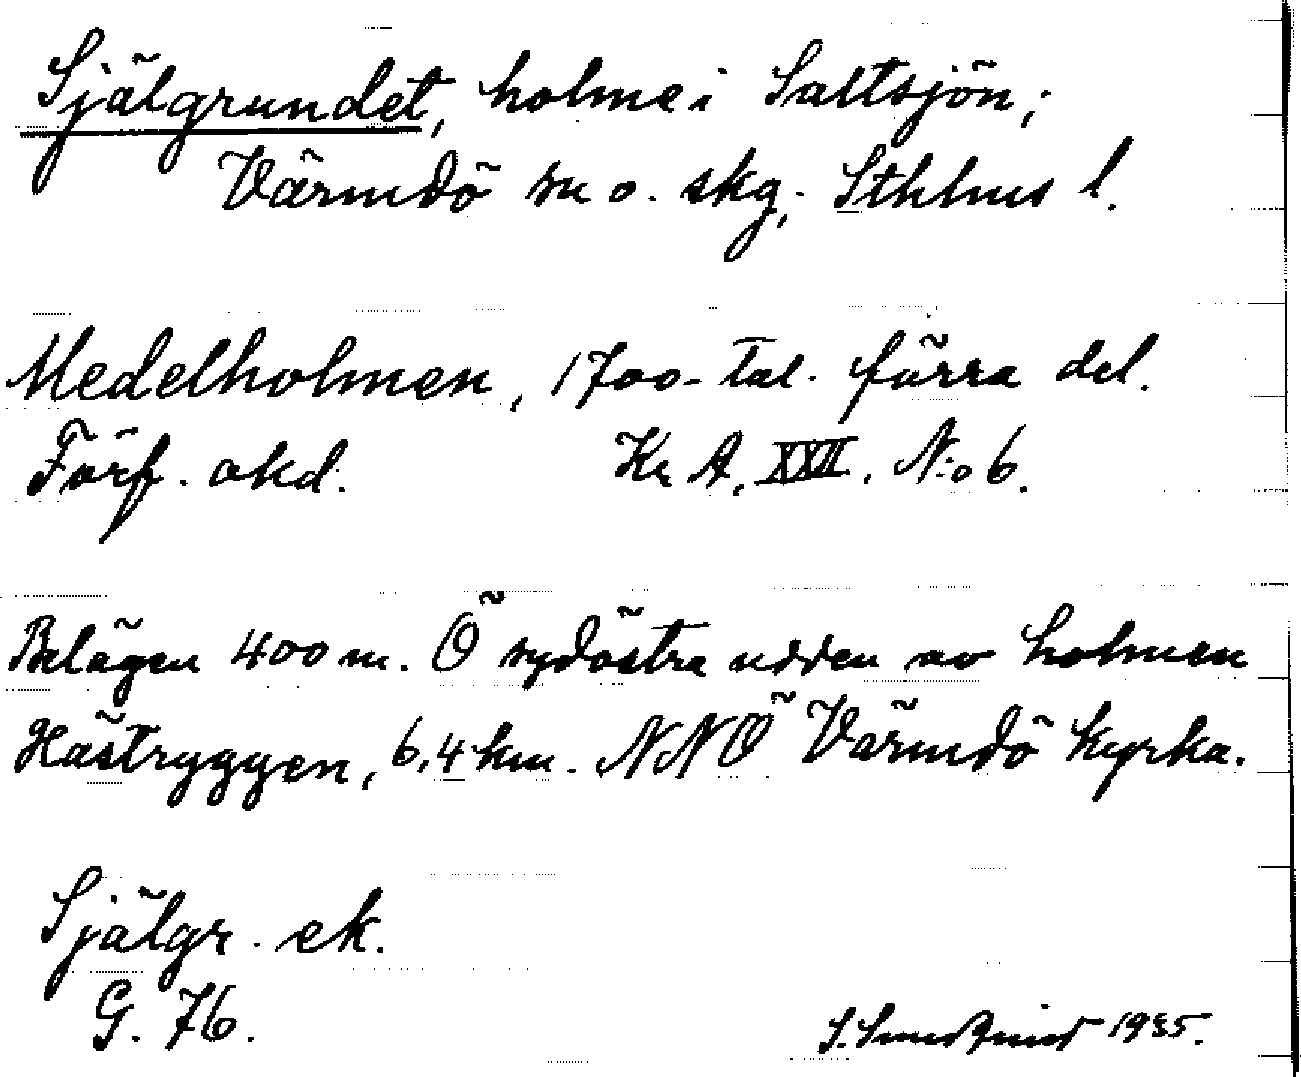 Själgrundet, holme i Saltsjön;
Värmdö sn o. skg; Sthlms l.
Medelholmen, 1700-tal. förra del.
Förf. okd. Kr A, XXII, N:o 6.
Belägen 400 m. Ö sydöstra udden av holmen
Hästryggen, 6,4 km. NNÖ Värmdö kyrka.
Själgr. ek.
G. 76.
S. Sundquist 1935.